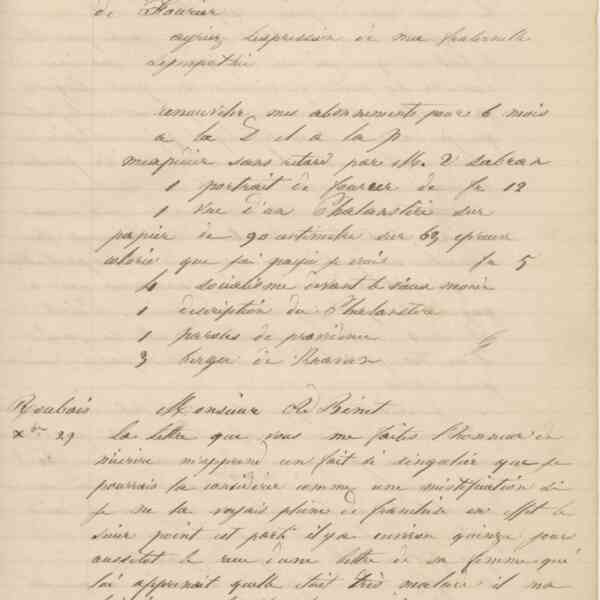 de Fourier
agréez l'expression de ma fraternelle
sympathie
renouveler mes abonnements pour 6 mois
a la D et a la p
m'expédier sans retard par M. V Sabran
1 portrait de fourier de fr 12
1 vue d'un Phalanstère sur
papier de 90 centimètre sur 63 épreuve
colorié que j'ai payée je crois fr 5
4 socialisme devant le vieux monde
1 description du Phalanstère
1 paroles de providence
3 berger de Kravan
Roubaix
Xbre 29
Monsieur A de Bénet
la lettre que vous me faites l'honneur de
m'écrire m'apprend un fait si singulier que je
pourrais la considérer comme une mistification si
je ne la voyais pleine de franchise en effet le
sieur point est parti il y a environ quinze jours
aussitot le reçu d'une lettre de sa femme qui
lui apprenait quelle était très malade il